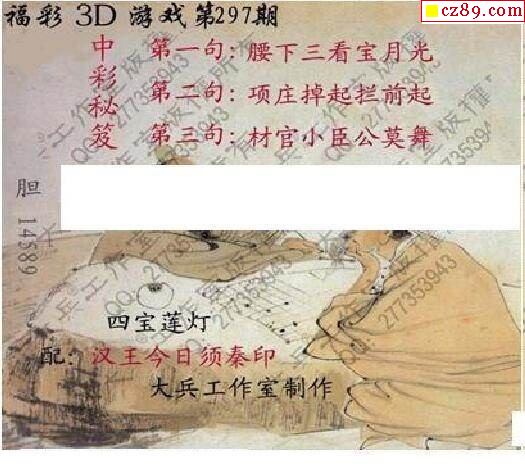 福彩 3D 游戏第297期
cz89.com
中彩秘笈
第一句: 腰下三看宝月光
第二句: 项庄掉起拦前起
第三句: 材官小臣公莫舞
胆 14589
四宝莲灯
配: 汉王今日须秦印
大兵工作室制作
大兵工作室版權所有
QQ: 277353943